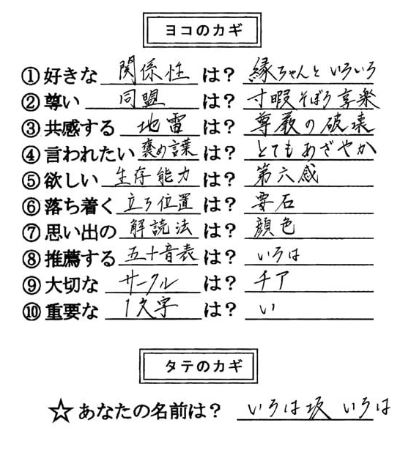 ヨコのカギ
①好きな 関係性 は? 縁ちゃんと いろいろ
②尊い 同盟 は? 寸暇そぼろ享楽
③共感する 地雷 は? 尊厳の破壊
④言われたい 褒め言葉 は? とてもあざやか
⑤欲しい 生存能力 は? 第六感
⑥落ち着く 立ち位置 は? 要石
⑦思い出の 解読法 は? 顔色
⑧推薦する 五十音表 は? いろは
⑨大切な サークル は? チア
⑩重要な 1文字 は? い
タテのカギ
☆あなたの名前は? いろは坂 いろは